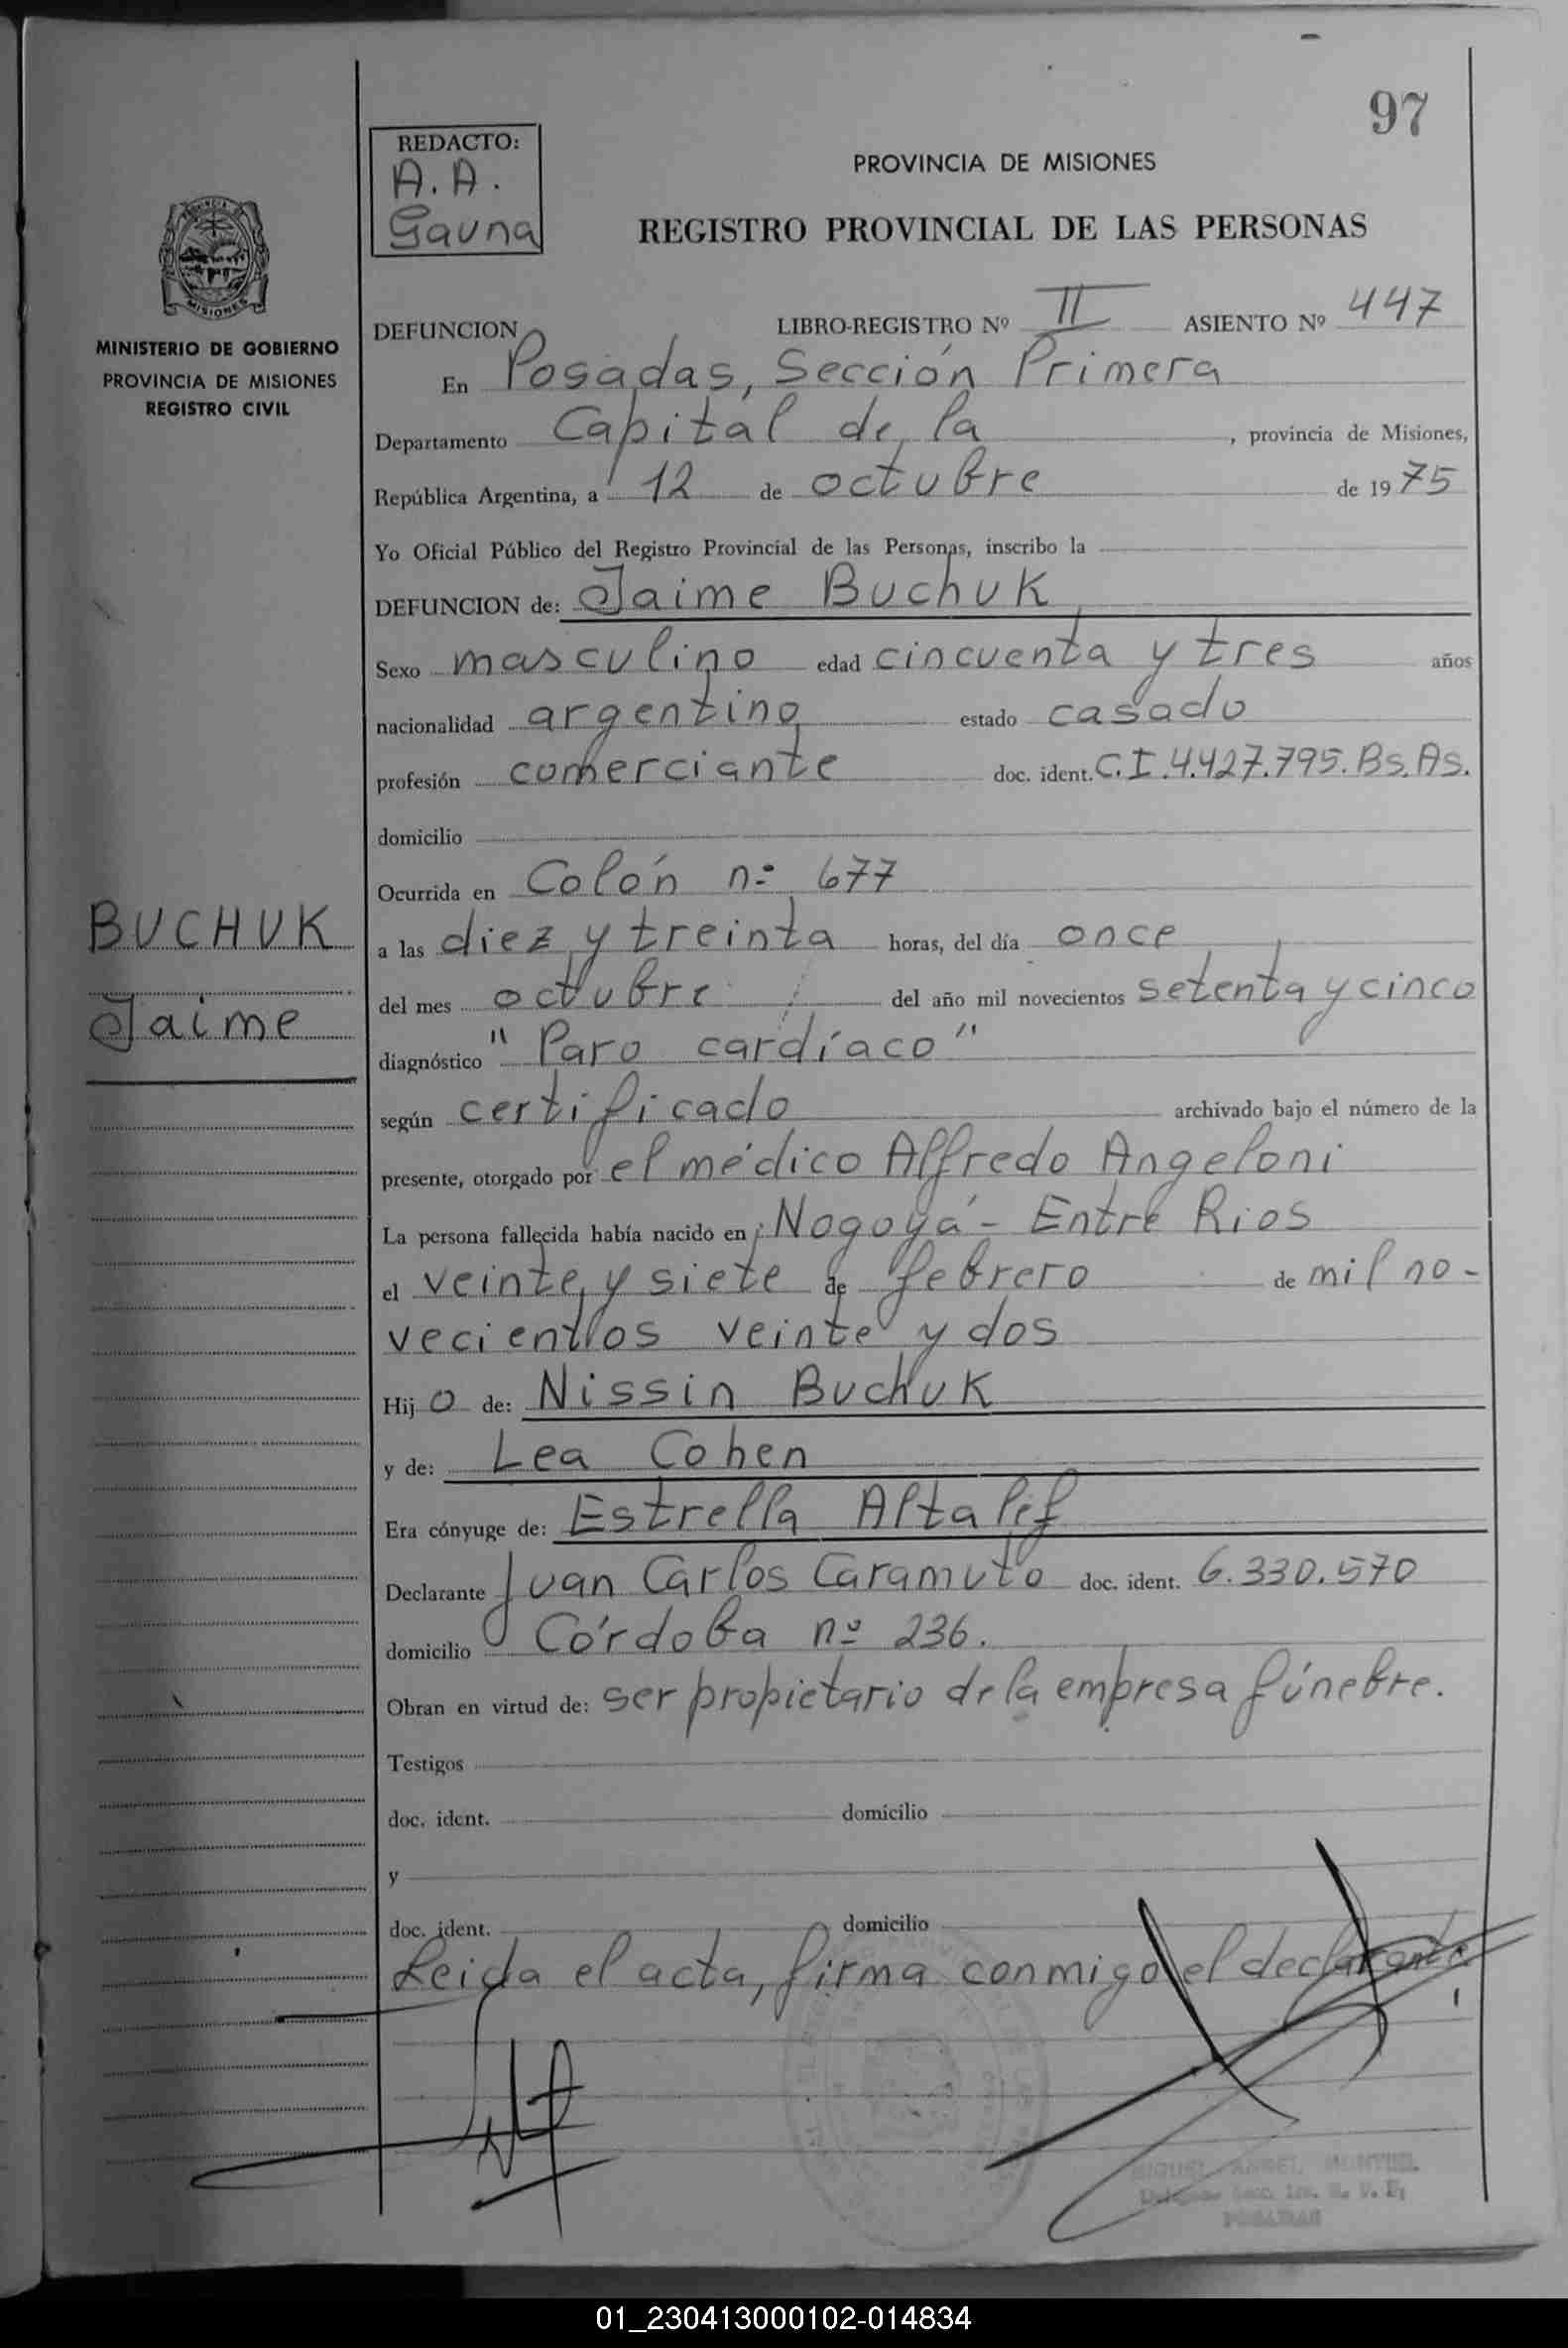 97
REDACTO:
A. A.
Gauna
PROVINCIA DE MISIONES
REGISTRO PROVINCIAL DE LAS PERSONAS
MISIONES
MINISTERIO DE GOBIERNO
PROVINCIA DE MISIONES
REGISTRO CIVIL
DEFUNCION LIBRO-REGISTRO Nº II ASIENTO Nº 447
En Posadas, Sección Primera
Departamento Capital de la, provincia de Misiones,
República Argentina, a 12 de octubre de 1975
Yo Oficial Público del Registro Provincial de las Personas, inscribo la
DEFUNCION de: Jaime Buchuk
Sexo masculino edad cincuenta y tres años
nacionalidad argentino estado casado
profesión comerciante doc. ident. C.I.4.427.795.Bs.As.
domicilio
Ocurrida en Colón nº 677
BUCHUK
Jaime
a las diez y treinta horas, del día once
del mes octubre del año mil novecientos setenta y cinco
diagnóstico "Paro cardíaco"
según certificado archivado bajo el número de la
presente, otorgado por el médico Alfredo Angeloni
La persona fallecida había nacido en Nogoyá - Entre Rios
el veinte y siete de febrero de mil no-
vecientos veinte y dos
Hijo de: Nissin Buchuk
y de: Lea Cohen
Era cónyuge de: Estrella Altalef
Declarante Juan Carlos Caramuto doc. ident. 6.330.570
domicilio Córdoba nº 236.
Obran en virtud de: ser propietario de la empresa fúnebre.
Testigos
doc. ident. domicilio
y
doc. ident. domicilio
Leida el acta, firma conmigo el declarante
MIGUEL ANGEL MONTIEL
POSADAS
01_230413000102-014834